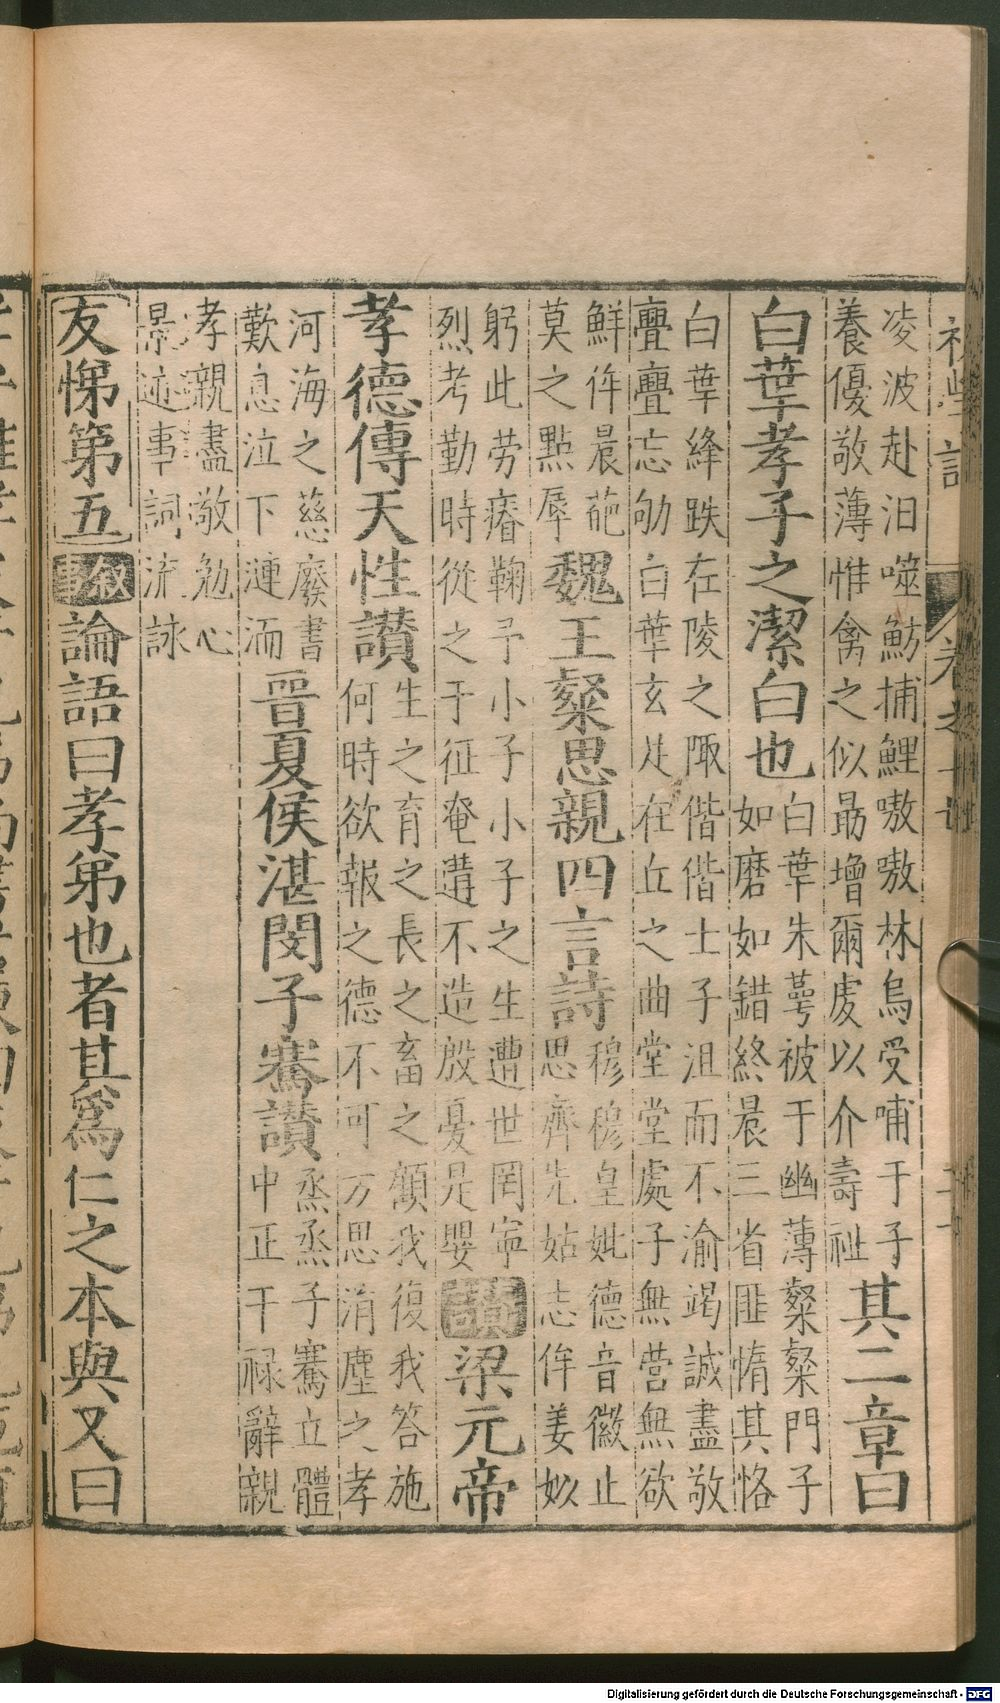 初學記
卷之十七
凌波赴汨噬魴捕鯉嗷嗷林烏受哺于子
養優敬薄惟禽之似勗增爾虔以介壽祉
其二章曰
白華孝子之潔白也
白華朱萼被于幽薄粲粲門子
如磨如錯終晨三省匪惰其恪
白華絳趺在陵之陬偕偕士子沮而不渝竭誠盡敬
亹亹忘劬白華玄足在丘之曲堂堂處子無營無欲
鮮侔晨葩
莫之點辱
魏王粲思親四言詩
穆穆皇妣德音徽止
思齊先姑志侔姜姒
躬此劳瘠鞠予小子小子之生遭世罔寧
烈考勤時從之于征奄遘不造殷憂是嬰
讚
梁元帝
孝德傳天性讃
生之育之長之畜之顧我復我答施
何時欲報之德不可方思涓塵之孝
河海之慈廢書
歎息泣下漣洏
晉夏侯湛閔子騫讃
烝烝子騫立體
中正干禄辭親
孝親盡敬勉心
景迹事詞流詠
友悌第五
敘事
論語曰孝弟也者其爲仁之本與又曰
Digitalisierung gefördert durch die Deutsche Forschungsgemeinschaft - DFG